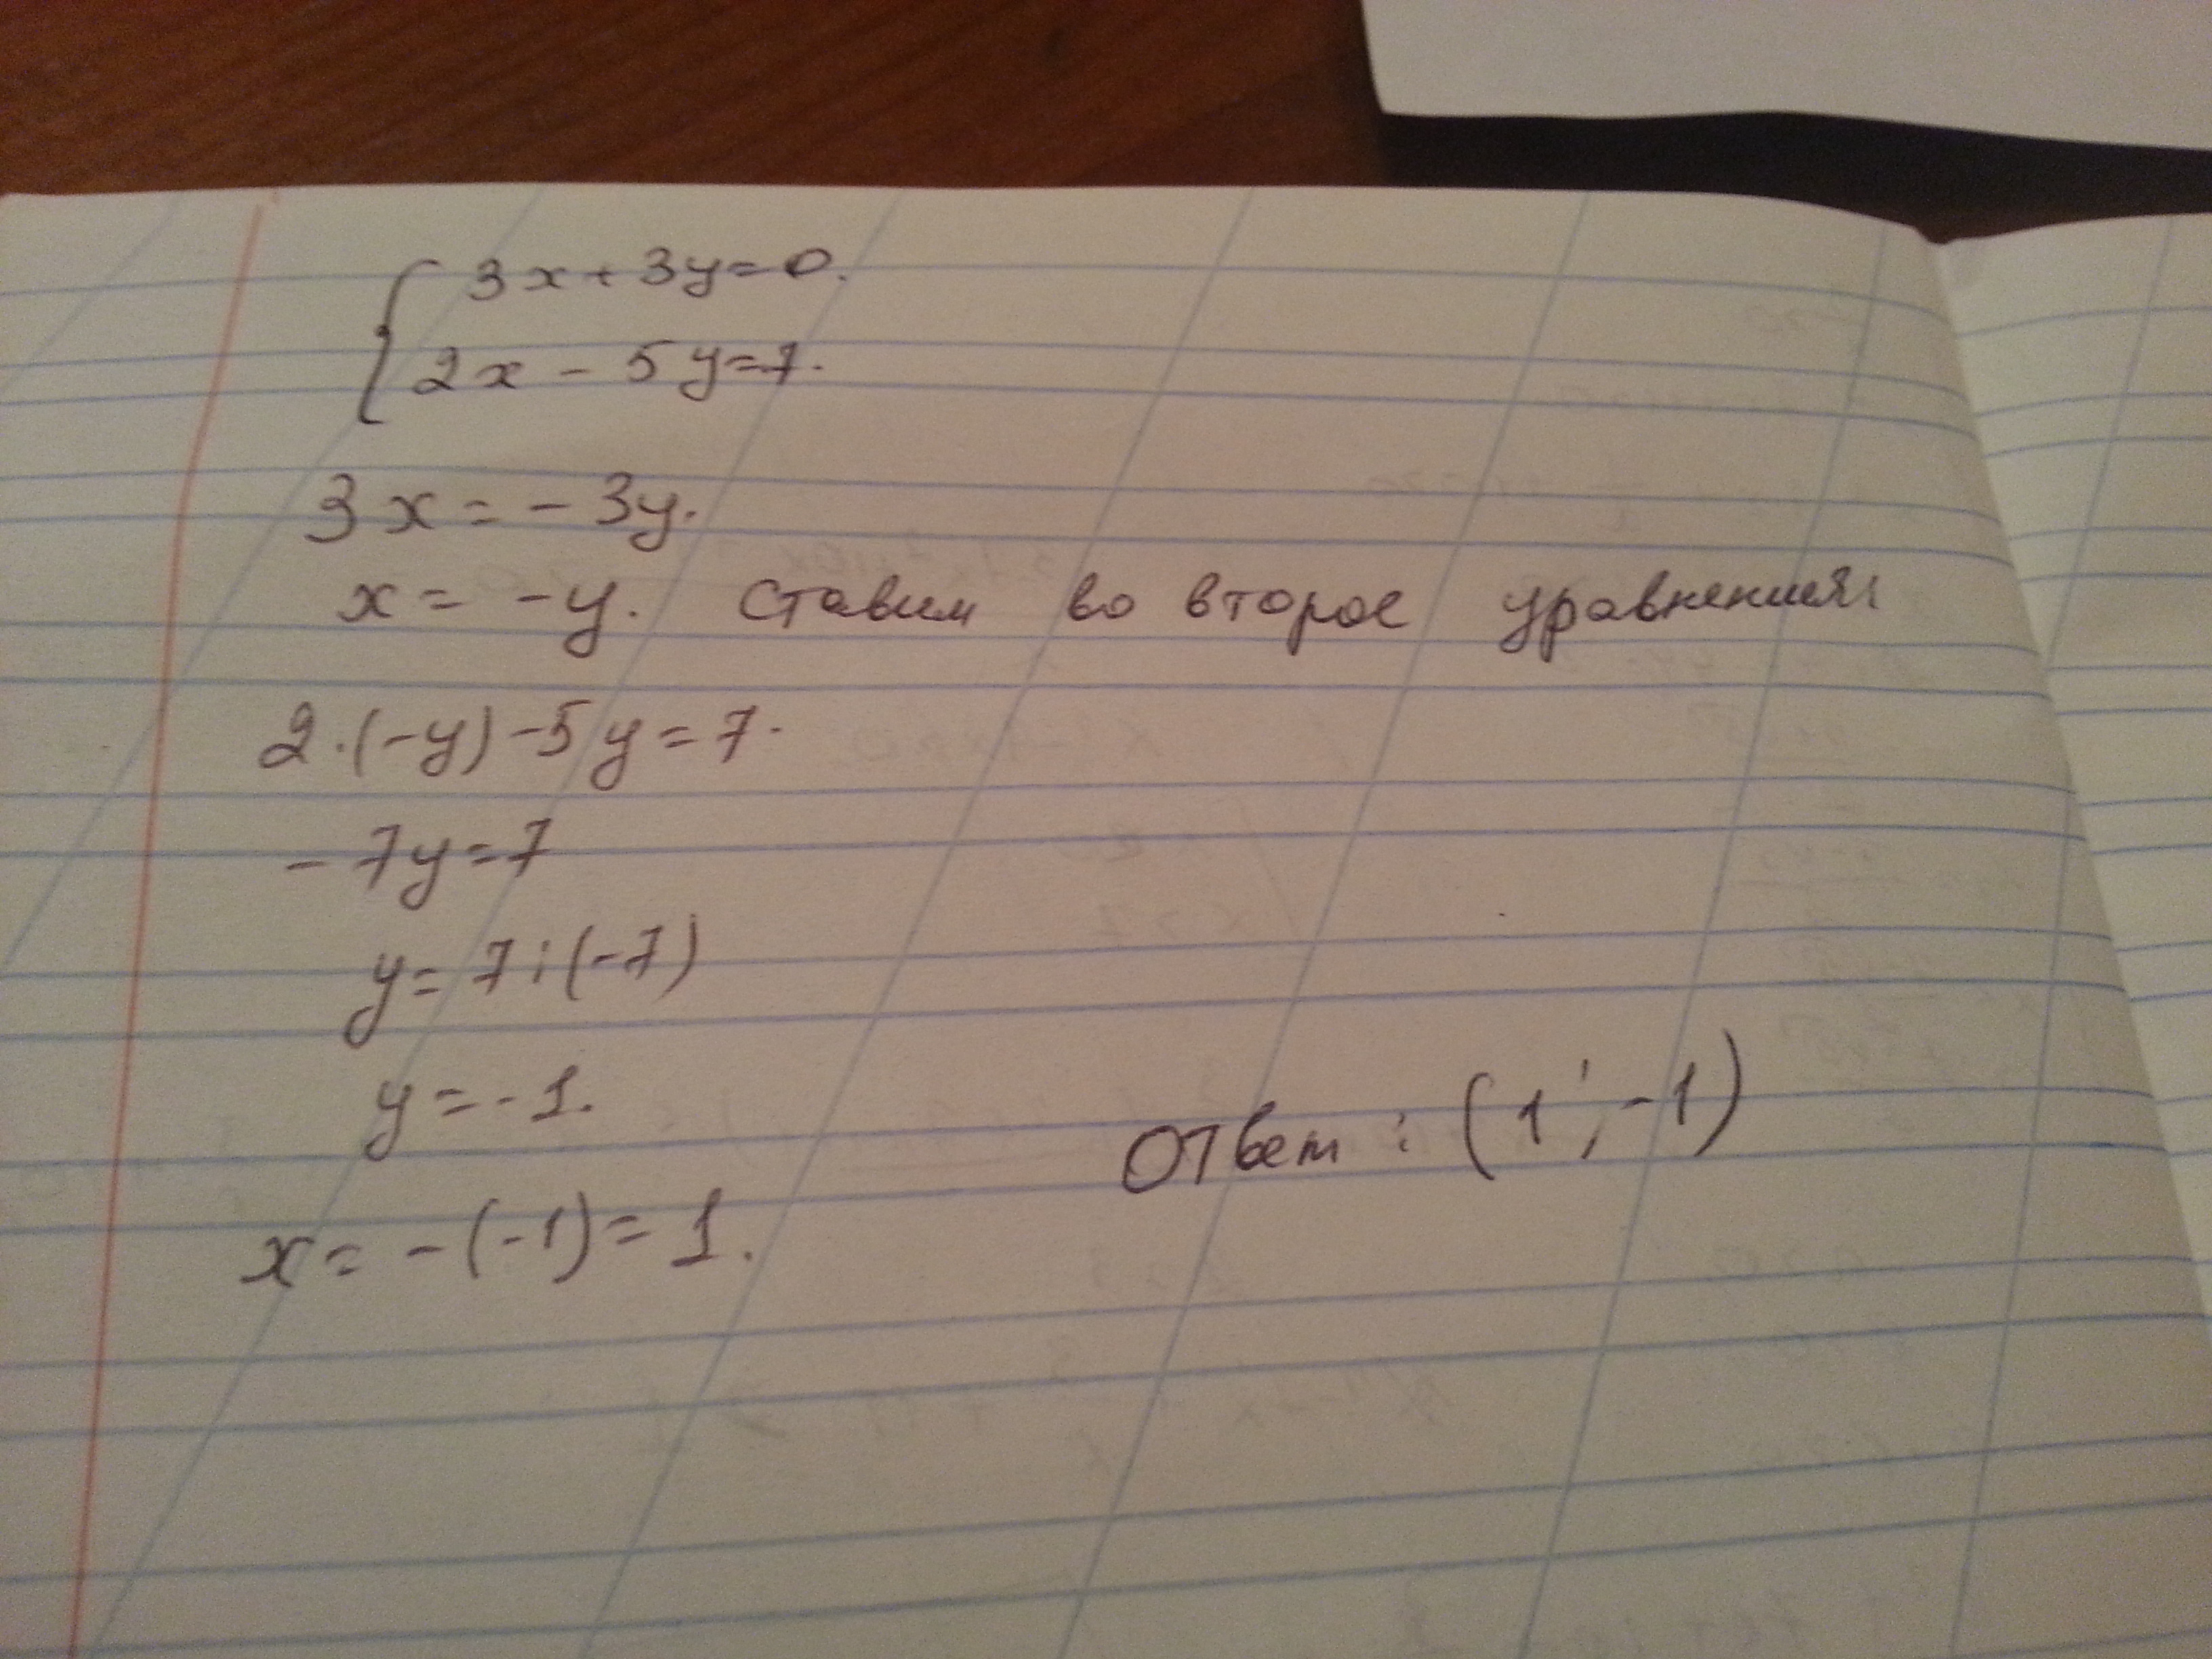 3x + 3y = 0.
2x - 5y = 7.
3x = - 3y.
x = - y. Ставим во второе уравнения:
2·(-y) - 5y = 7.
- 7y = 7
y = 7 : (-7)
y = - 1.
Ответ : (1 ; -1)
x = - (-1) = 1.